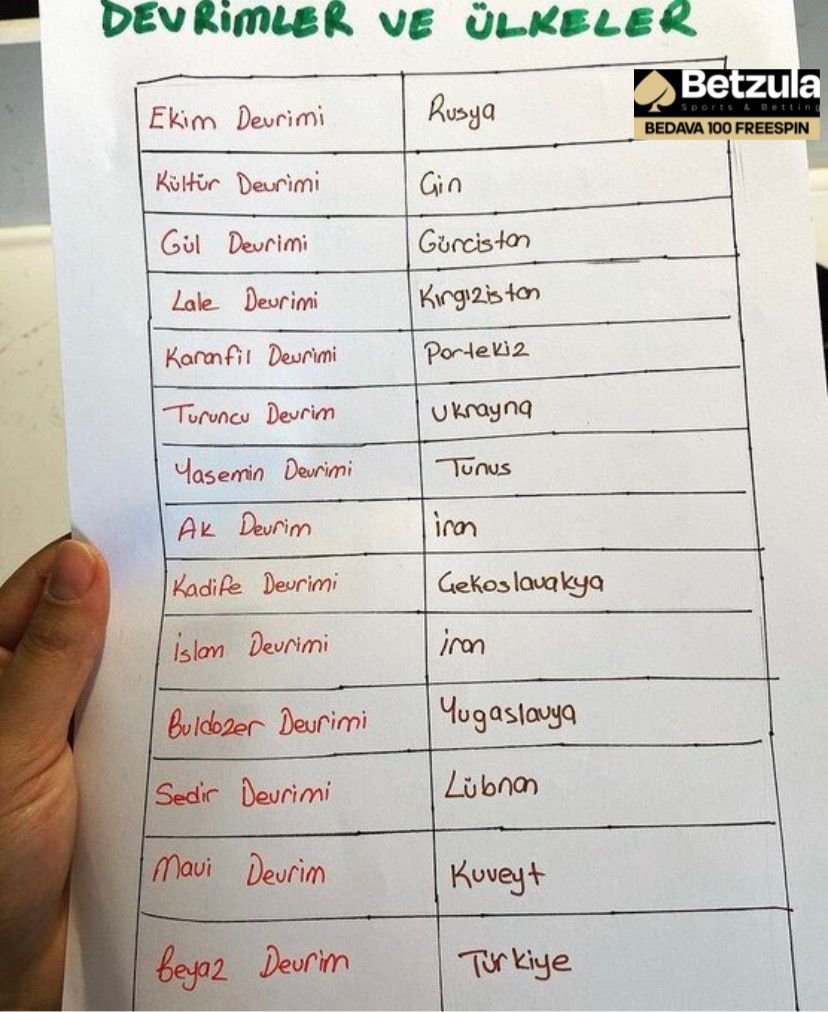 DEVRİMLER VE ÜLKELER
Betzula
Sports & Betting
BEDAVA 100 FREESPIN
Ekim Devrimi Rusya
Kültür Devrimi Çin
Gül Devrimi Gürcistan
Lale Devrimi Kırgızistan
Karanfil Devrimi Portekiz
Turuncu Devrim Ukrayna
Yasemin Devrimi Tunus
Ak Devrim İran
Kadife Devrimi Çekoslavakya
İslam Devrimi İran
Buldozer Devrimi Yugaslavya
Sedir Devrimi Lübnan
Mavi Devrim Kuveyt
Beyaz Devrim Türkiye